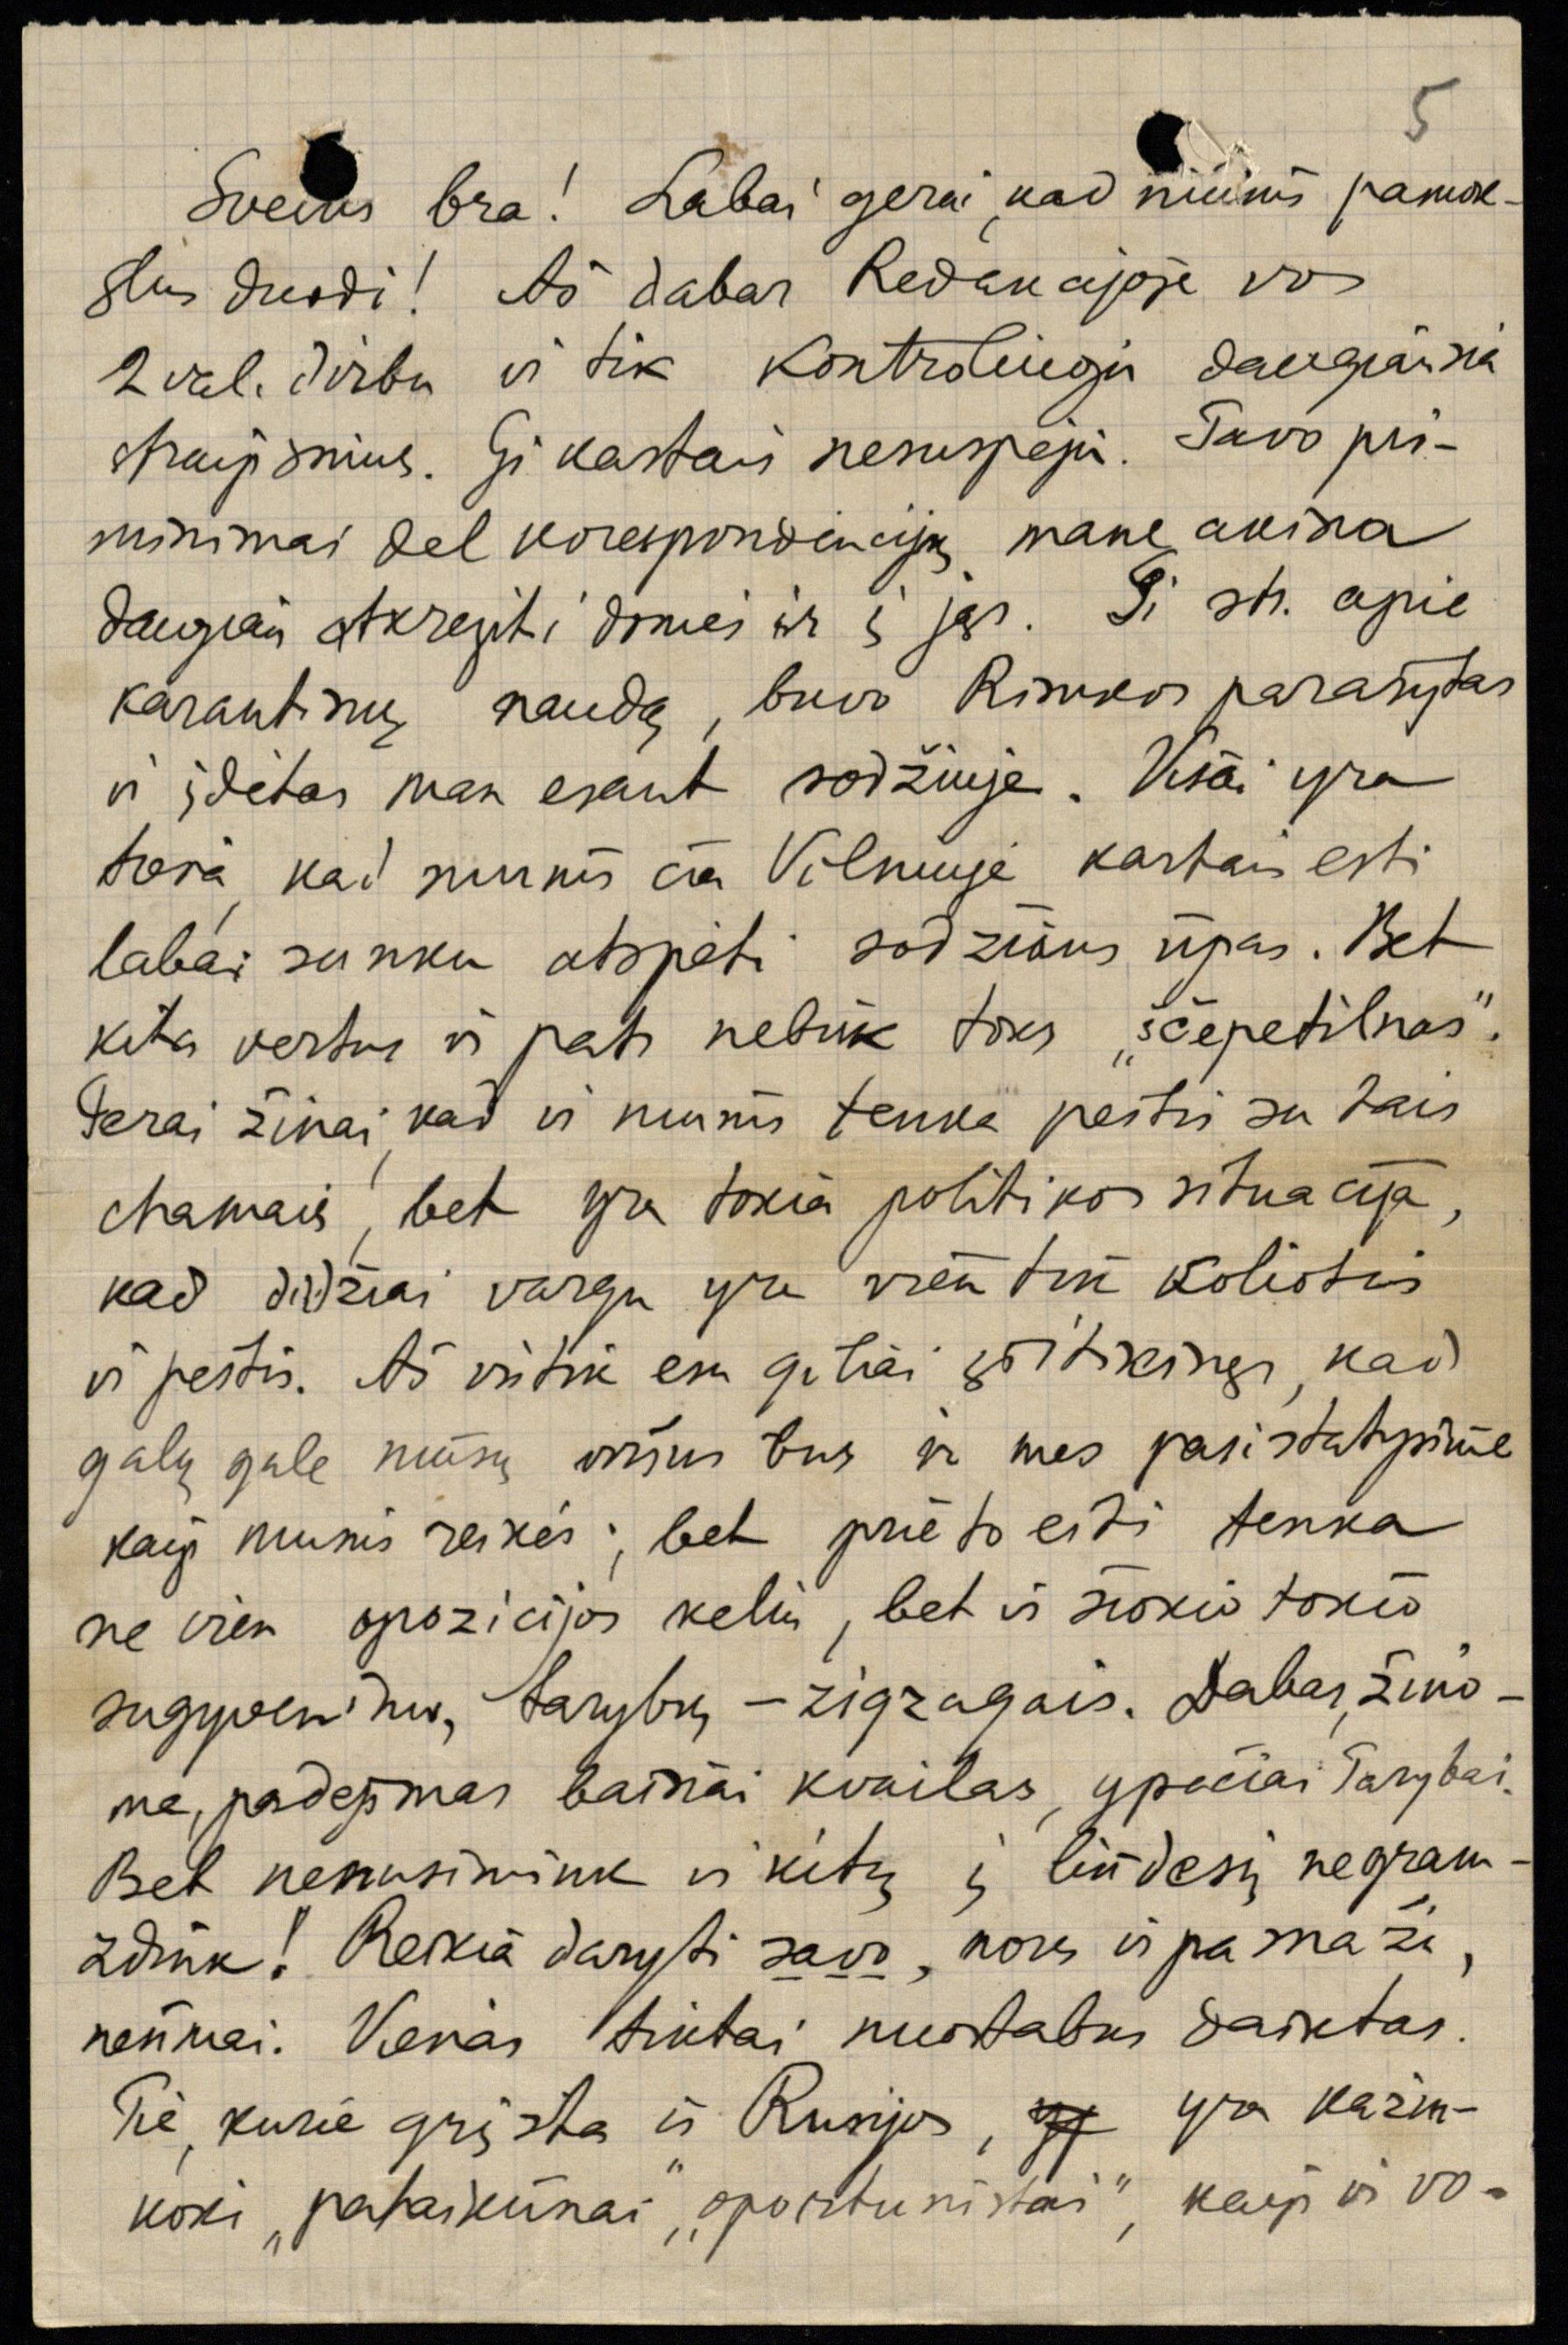 5
Sveikas bra! Labai gerai, kad mums pamok-
slus duodi! Aš dabar Redakcijoje vos
2 val. dirbu ir tik kontroliuoju daugiausia
straipsnius. Gi kartais nesuspėju. Tavo pri-
minimai del korespondencijų mane akina
daugiau atkreipti domės ir į jas. Gi str. apie
karantinų naudą, buvo Rimkos parašytas
ir įdėtas man esant sodžiuje. Visai yra
tiesa, kad mums čia Vilniuje kartais esti
labai sunku atspėti sodžiaus ūpas. Bet
kita vertus ir pats nebūk toks „ščepetilnas".
Gerai žinai, kad ir mums tenka peštis su tais
chamais, bet yra tokia politikos situacija,
kad didžiai vargu yra vien tik koliotis
ir peštis. Aš vistik esu giliai įsitikinęs, kad
galų gale mūsų viršus bus ir mes pasistatysime
kaip mums reikės; bet prie to eiti tenka
ne vien opozicijos keliu, bet ir šiokio tokio
sugyvenimo, tarybų – zigzagais. Dabar, žino-
ma, padėjimas baisiai kvailas, ypačiai Tarybai.
Bet nenusimink ir kitų į liūdesį negram-
zdink! Reikia daryti savo, nors ir pamaži,
ramiai. Vienas tiktai nuostabus daiktas.
Tie, kurie grįžta iš Rusijos, yra kažin-
koki „pataikūnai", „oportunistai", kaip ir vo-